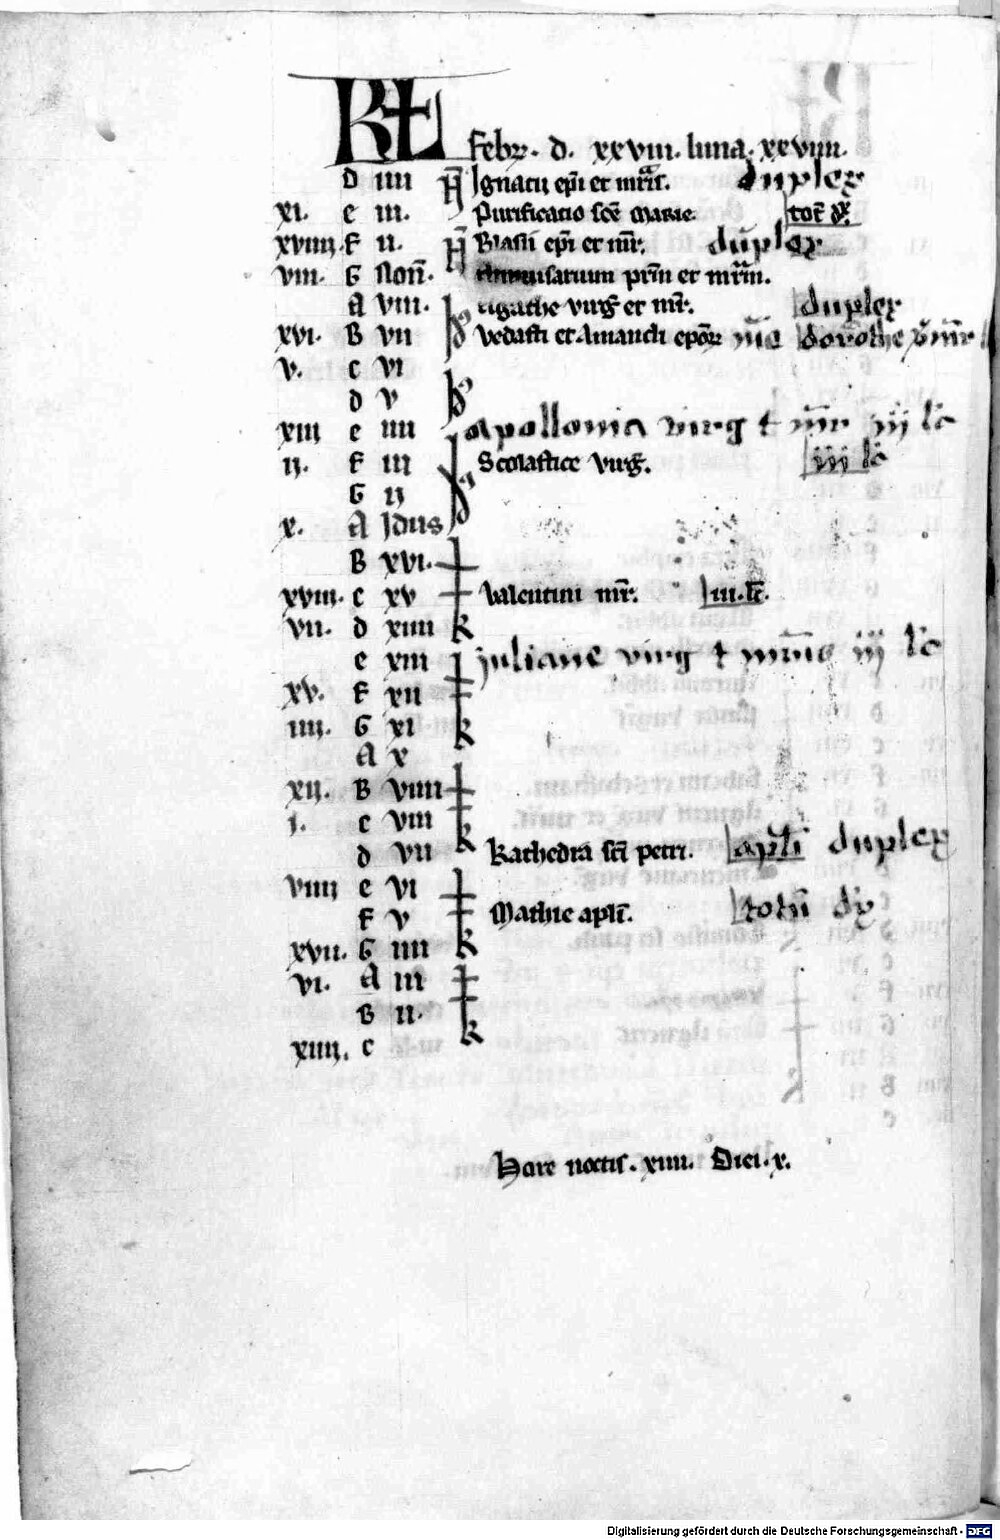 KL Febr. d. xxviii. luna. xxviiii.
d iiii N Ignatii epi et mris. duplex
xi. e iii. Purificatio sce Marie. tot dx
xviiii. F ii. N Blasii epi et mr. duplex
viii. G Non. prim et mrim.
A viii. Agathe virg et mr. duplex
xvi. B vii Vedasti et Amandi epor dorothe v mr
v. c vi
d v
xiii e iiii apollonia virg t mr iij lc
ij. F iii Scolastice virg. iij lc
G ij
x. A Idus
B xvi.
xviii. c xv Valentini mr. iii. lc.
vii. d xiiii k
e xiii juliane virg t mris iij lc
xv. F xii
iiii. G xi k
A x
xij. B viiii
j. c viii k
d vii Kathedra sci petri. apli duplex
viiii e vi
F v Mathie apli. totu dx
xvii. G iiii k
vi. A iii
B ii. k
xiiii. c
Hore noctis. xiiii. Diei. x.
Digitalisierung gefördert durch die Deutsche Forschungsgemeinschaft - DFG